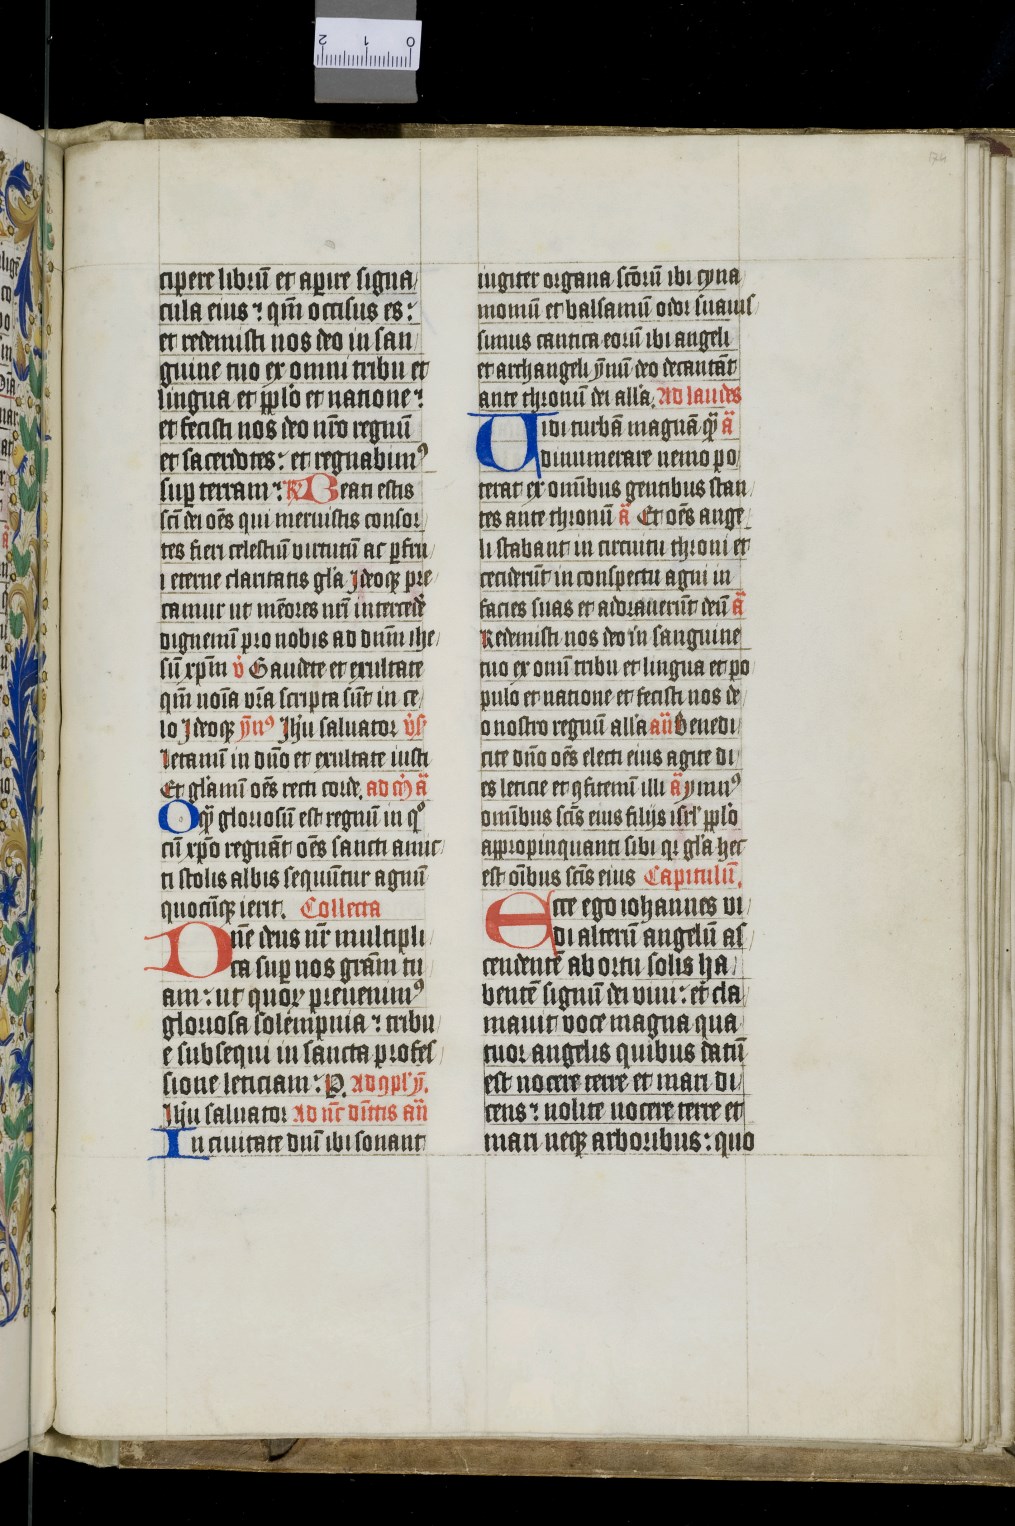 cipere libru̅ et apire signa
cula eius : qm̅ occisus es :
et redemisti nos deo in san
guine tuo ex omni tribu et
lingua et pp̅lo et natione :
et fecisti nos deo nr̅o regnu̅
et sacerdotes : et regnabimꝰ
sup terram : R̅ Beati estis
sci̅ dei oe̅s qui meruistis consor
tes fieri celestiu̅ virtutu̅ ac ꝑfru
i eterne claritatis gl̅a Ideoqꝫ pre
camur ut me̅ores nr̅i interced̅e
dignemi̅ pro nobis ad dn̅m ihe
su̅ xpm̅ v̅ Gaudete et exultate
qm̅ no̅ia vr̅a scripta su̅t in ce
lo Ideoqꝫ ẏn̅ꝰ Ihu̅ saluator v̅s
Letami̅ in dn̅o et exultate iusti
Et gl̅ami̅ oe̅s recti corde. ad m̅ a̅
O qꝫ gloriosu̅ est regnu̅ in qͦ
cu̅ xpo̅ regna̅t oe̅s sancti amic
ti stolis albis sequu̅tur agnu̅
quocu̅qꝫ ierit. Collecta
Dn̅e deus nr̅ multipli
ca sup nos gra̅m tu
am : ut quoꝝ preuenimꝰ
gloriosa sole̅mpnia : tribu
e subsequi in sancta profes
sione leticiam : P. Ad ꝯpl' ẏ̅.
Ihu̅ saluator Ad nc̅ di̅tis an̅
In ciuitate dn̅i ibi sonant
iugiter organa sc̅oru̅ ibi cyna
momu̅ et balsamu̅ odor suauis
simus cantica eoru̅ ibi angeli
et archangeli ẏmni̅ deo decanta̅t
ante thronu̅ dei all'a. Ad laudes
Uidi turba̅ magna̅ qꝫ a̅
dinumerare nemo po
terat ex omn̅ibus gentibus stan
tes ante thronu̅ a̅ Et oe̅s ange
li stabant in circuitu throni et
ceciderunt in conspectu agni in
facies suas et adorauerunt deu̅ a̅
Redemisti nos deo in sanguine
tuo ex omni̅ tribu et lingua et po
pulo et natione et fecisti nos de
o nostro regnu̅ all'a an̅ Benedi
cite dn̅o oe̅s electi eius agite di
es leticie et ꝯfitemi̅ illi a̅ ymnꝰ
omn̅ibus sc̅is eius filijs isrl' pp̅lo
appropinquanti sibi qr gl̅a hec
est oi̅bus sc̅is eius Capitulu̅.
Ecce ego iohannes vi
di alteru̅ angelu̅ as
cendente̅ ab ortu solis ha
bente̅ signu̅ dei viui : et cla
mauit voce magna qua
tuor angelis quibus datu̅
est nocere terre et mari di
cens : nolite nocere terre et
mari neqꝫ arboribus : quo